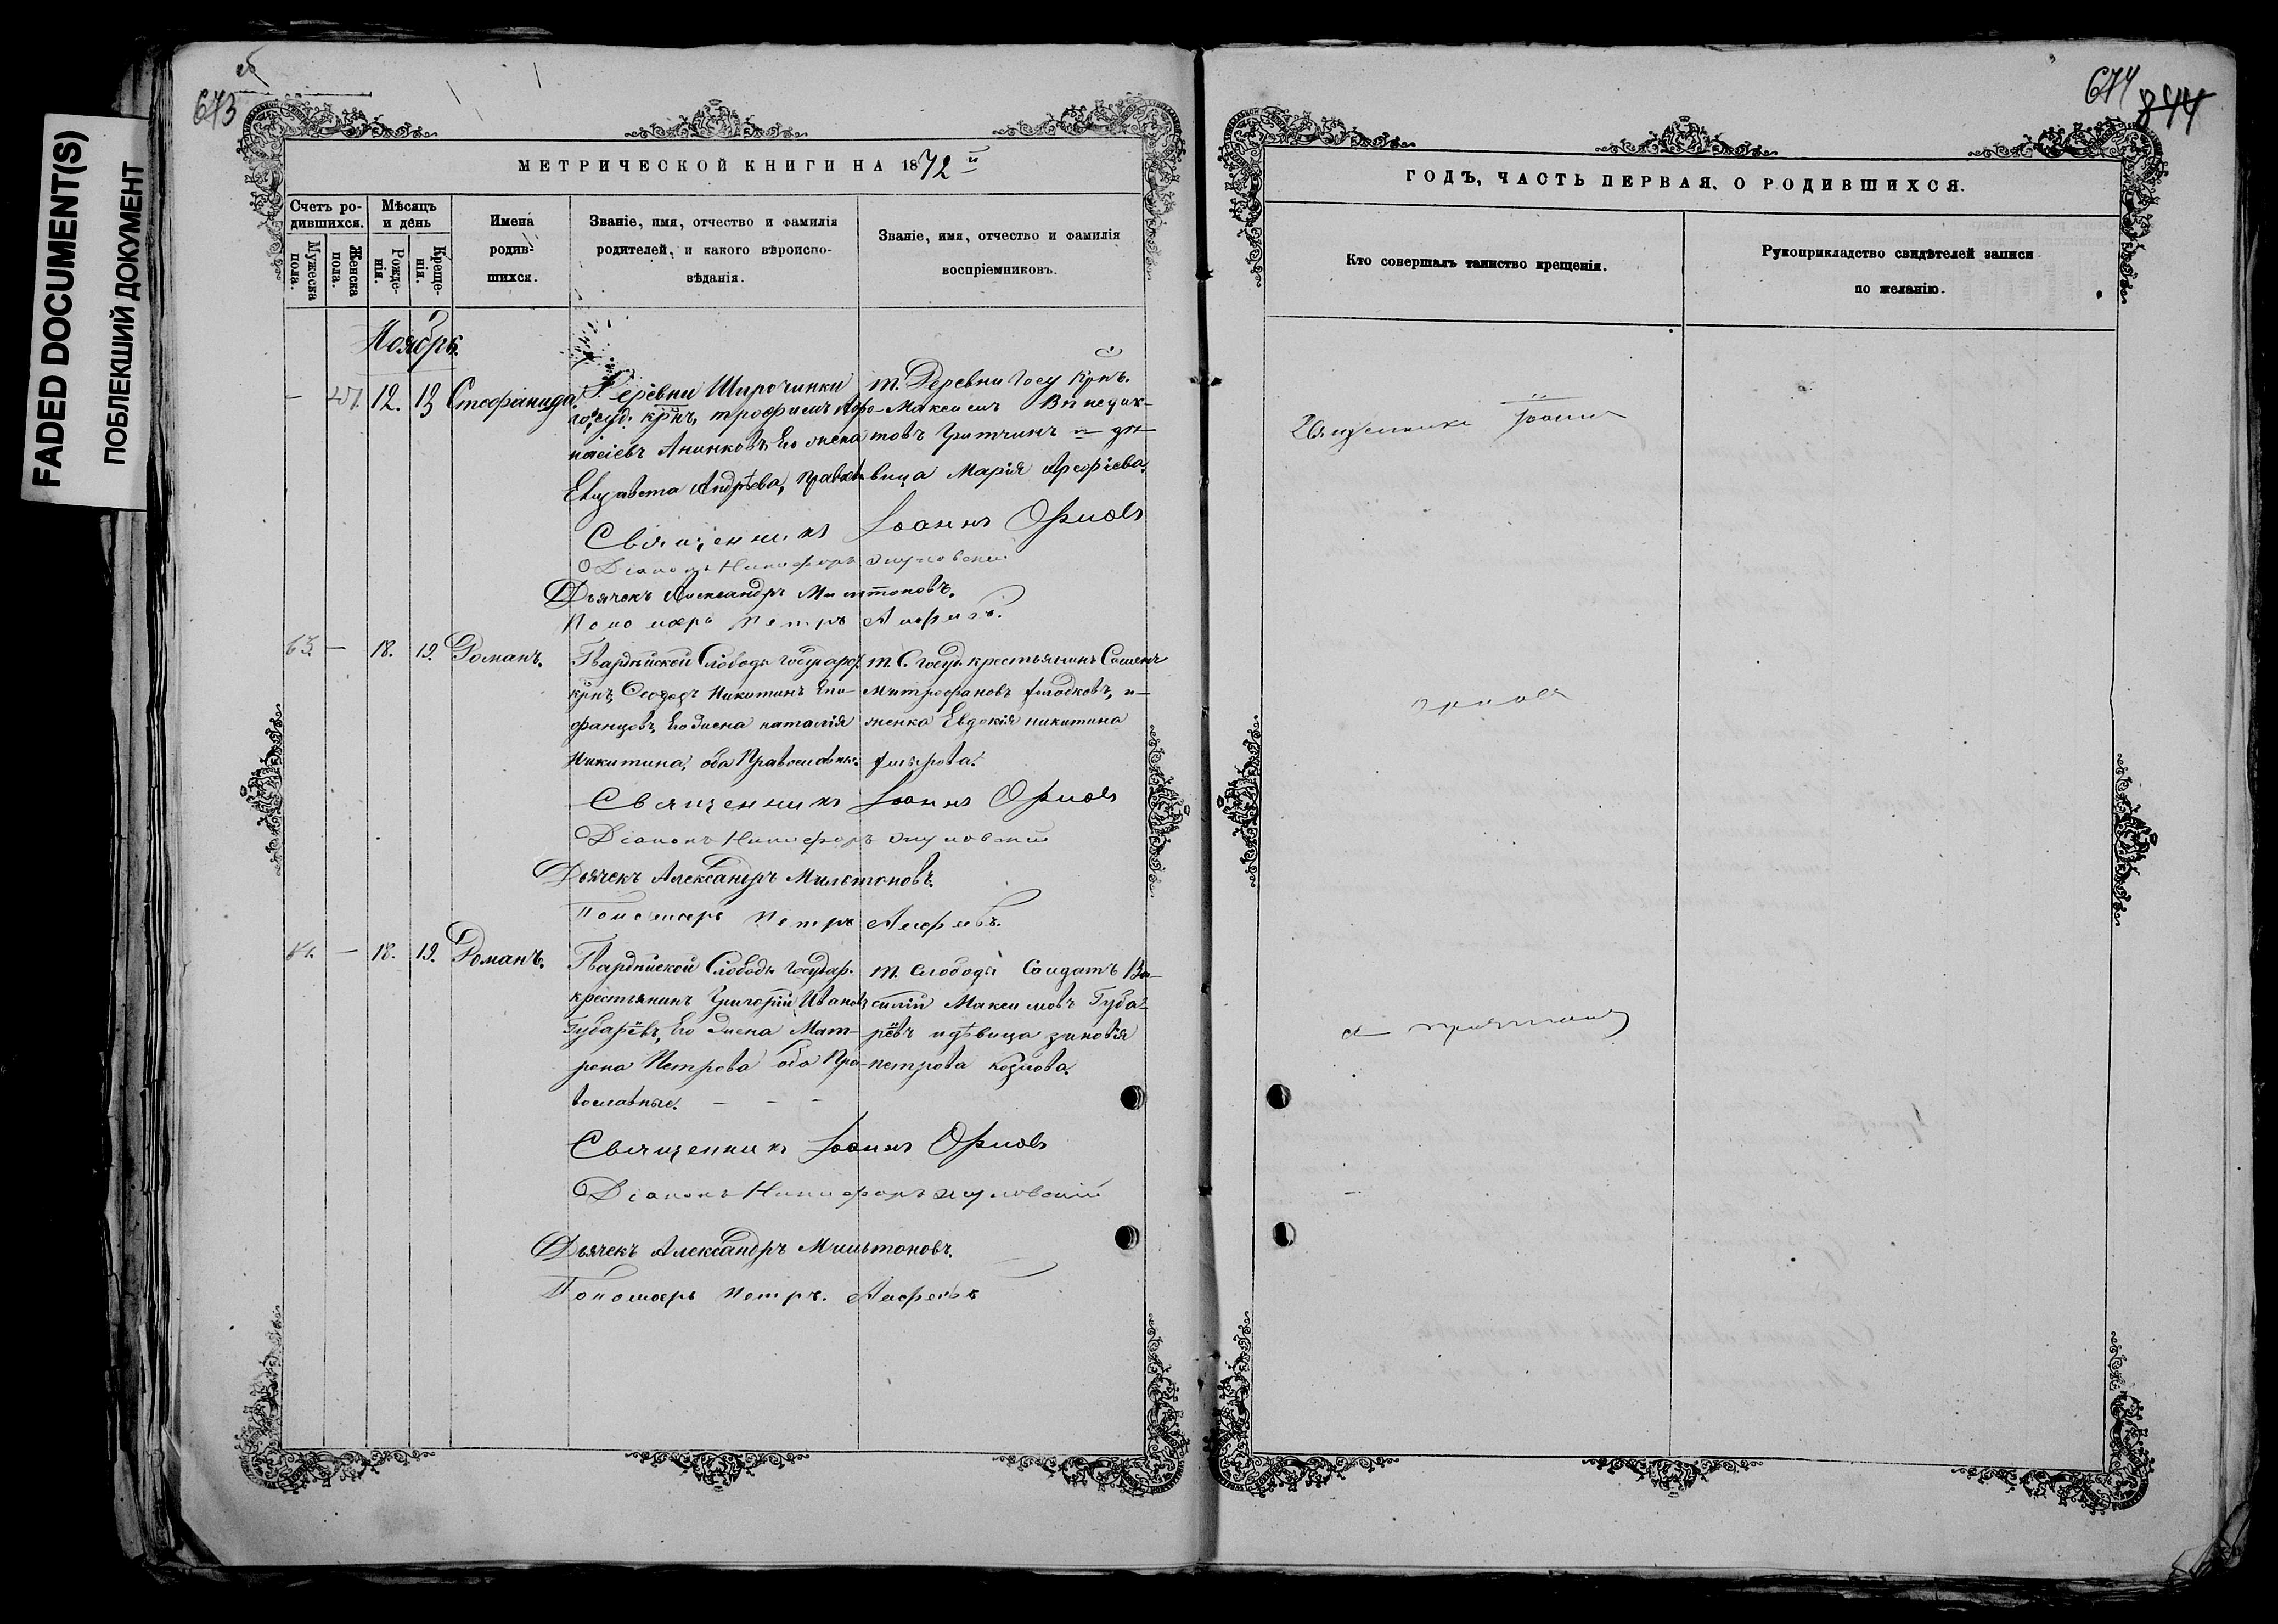 673
FADED DOCUMENT(S)
ПОБЛЕКШИЙ ДОКУМЕНТ
МЕТРИЧЕСКОЙ КНИГИ НА 1872 й
Счетъ ро-
дившихся.
Мужеска
пола.
Женска
пола.
Мѣсяцъ
и день
Рожде-
нія.
Креще-
нія.
Имена
родив-
шихся.
Званіе, имя, отчество и фамилія
родителей, и какого вѣроиспо-
вѣданія.
Званіе, имя, отчество и фамилія
воспріемниковъ.
Ноябрь.
12. 13 Стефанида.
Деревни Широчинки
госуд. крнъ, трофимъ Афо-
насіевъ Анинковъ, Его жена
Елизавета Андрѣева, Правосл
т. Деревни Госу крнъ.
Максимъ
Гритчинъ и дѣ-
вица Марія
Священникъ Іоаннъ Орловъ
Діаконъ Никифоръ
Дьячекъ Александръ Мильтоновъ.
Пономарь Петръ Алфеевъ.
— 18. 19. Романъ.
Гвардѣйской Слободы государ.
крнъ, Феодоръ Никитинъ Епи-
фанцовъ, Его жена наталія
Никитина, оба Православные.
т. С. Госуд. крестьянинъ Семенъ
Митрофановъ и
женка Евдокія никитина
Священникъ Іоаннъ Орловъ
Діаконъ Никифоръ
Дьячекъ Александръ Мильтоновъ.
Пономарь Петръ Алфеевъ.
84. — 18. 19. Романъ.
Гвардѣйской Слободы государ.
крестьянинъ Григорій Ивановъ
Губарёвъ, Его жена Мат-
рона Петрова оба Пра-
вославные. - - -
т. слободы Солдатъ Ва-
силій Максимовъ Губа-
рёвъ и дѣвица зиновія
петрова козлова.
Священникъ Іоаннъ Орловъ
Діаконъ Никифоръ
Дьячекъ Александръ Мильтоновъ.
Пономарь Петръ. Алфеевъ
674
844
ГОДЪ, ЧАСТЬ ПЕРВАЯ, О РОДИВШИХСЯ.
Кто совершалъ таинство крещенія.
Рукоприкладство свидѣтелей записи
по желанію.
Священникъ Іоаннъ
Орловъ
съ причтомъ